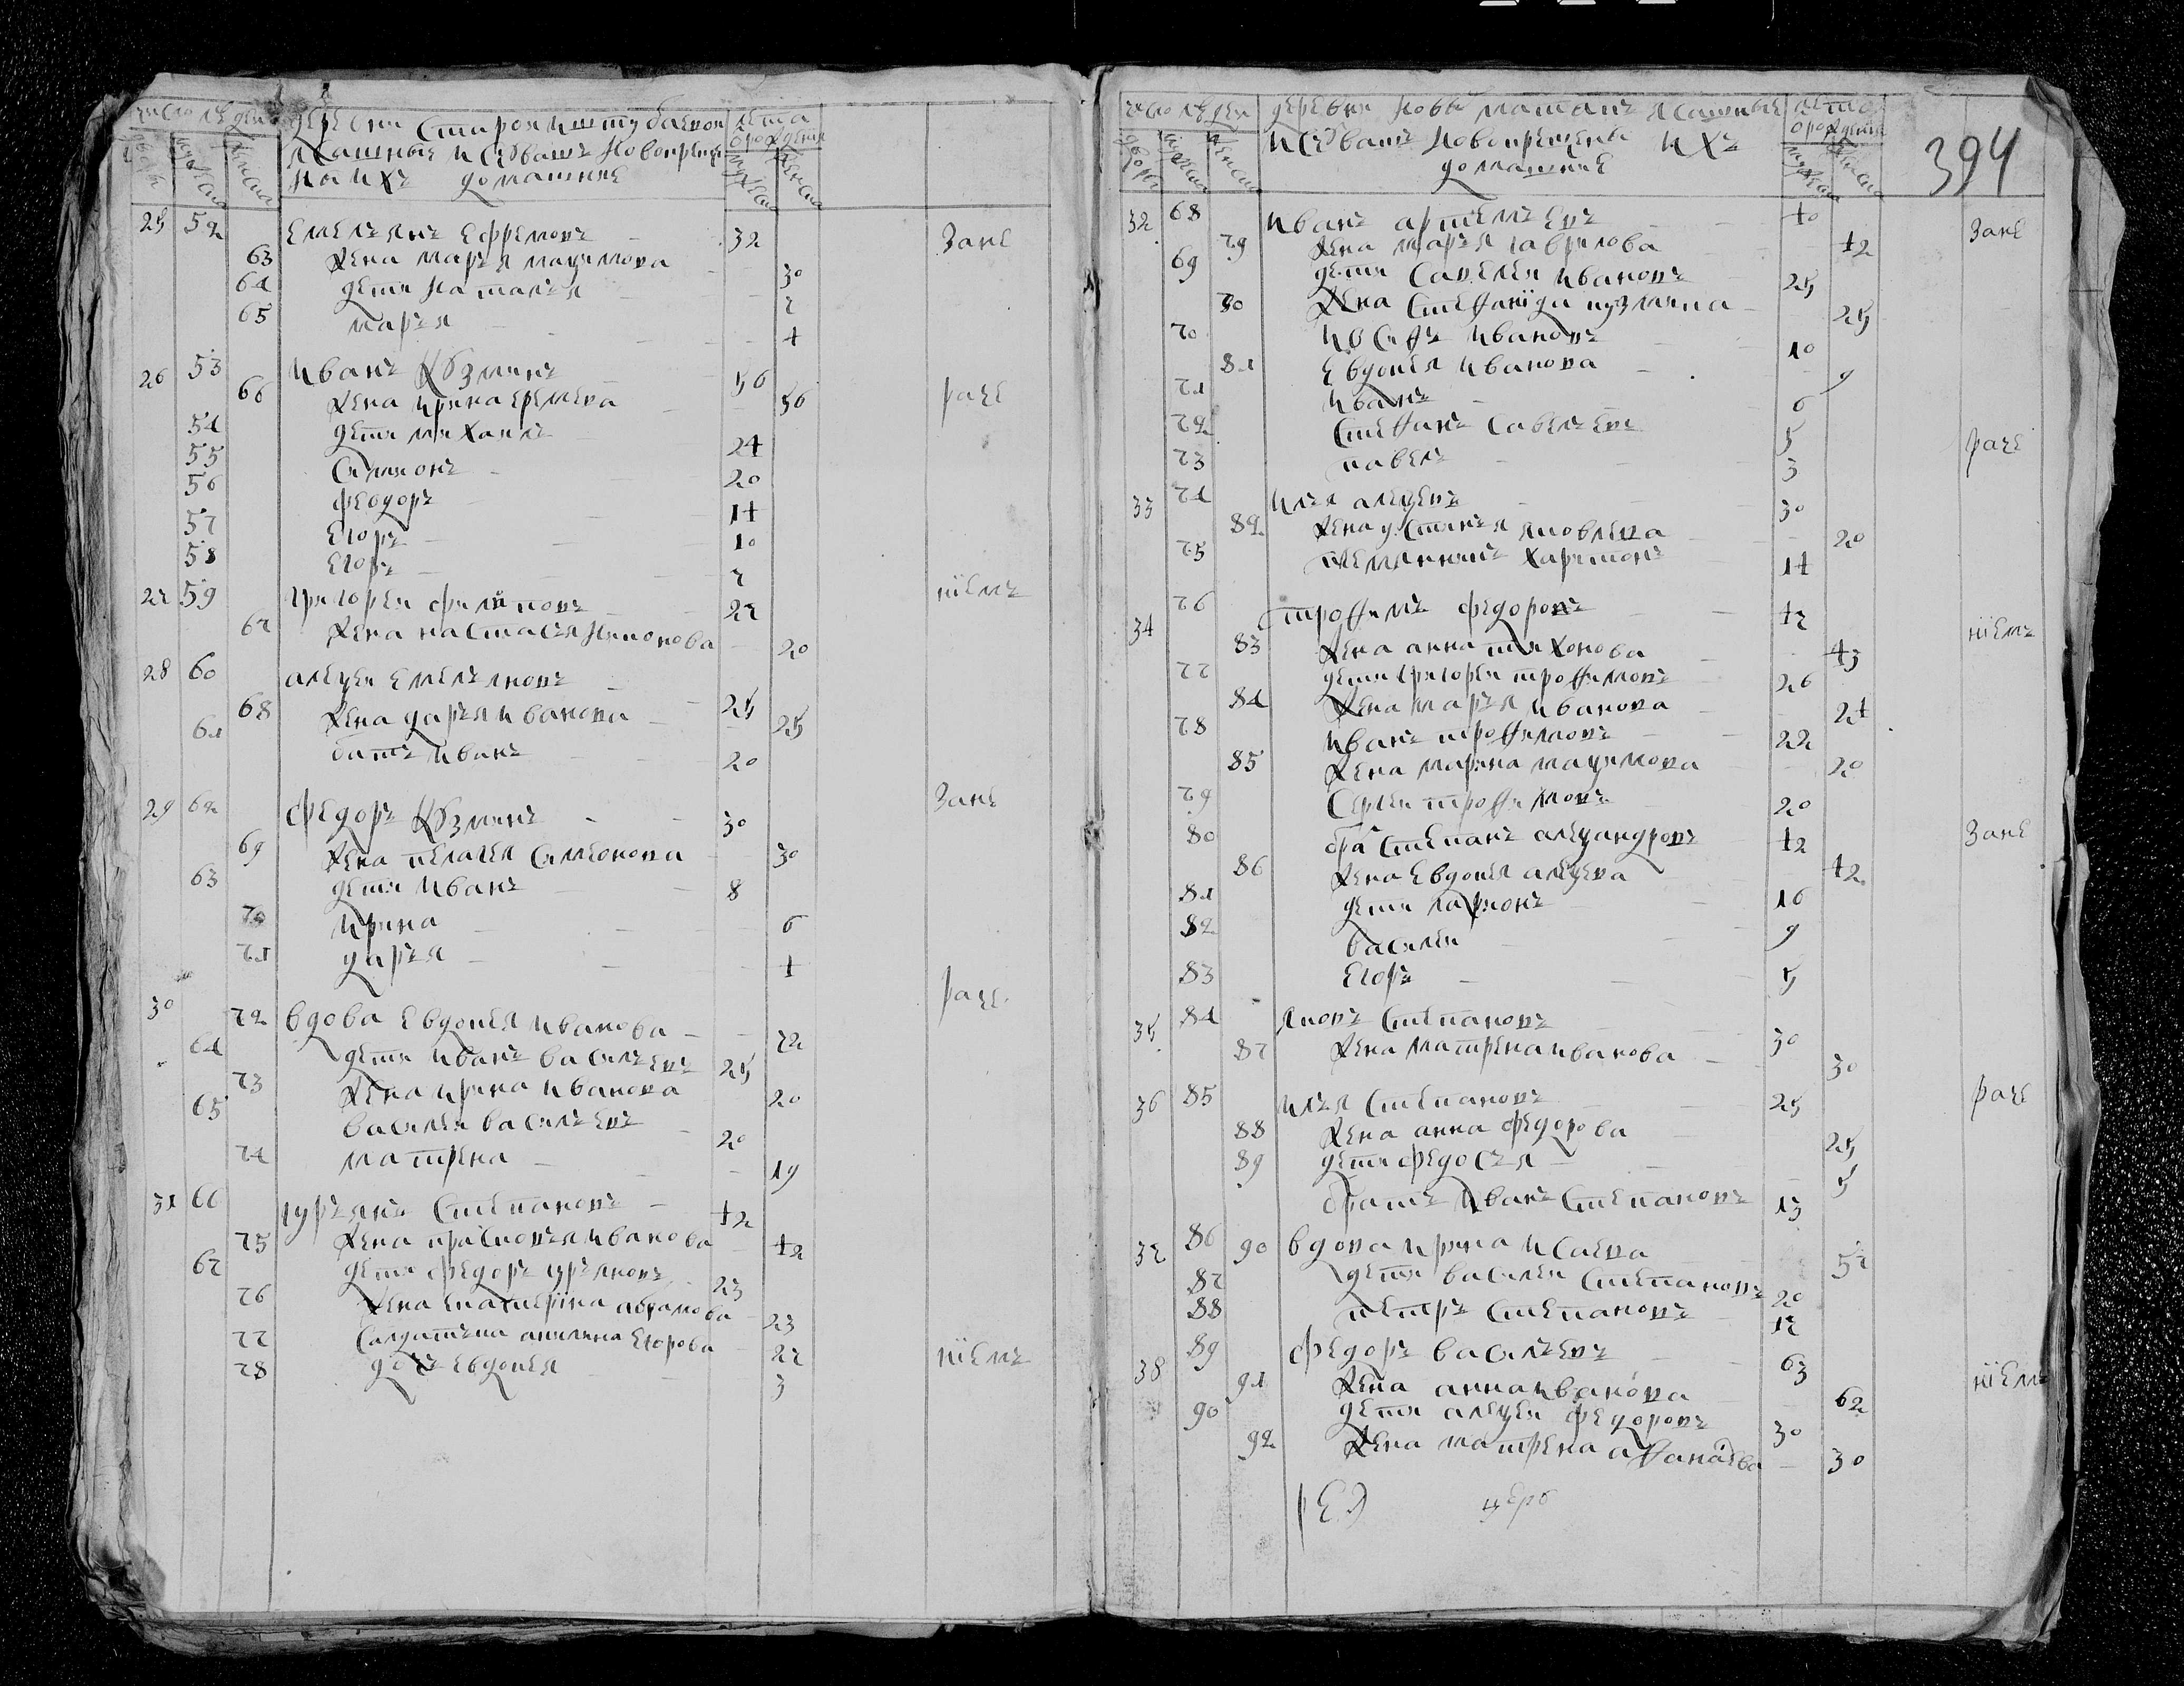 число людей
деревни Старой Иштубаевой
лета
ясашные и Чюваш новокреще
от рождения
ны их домашние
двора
мужска
женска
мужска
женска
25 52 Емельян Ефремов 32 Зане
63 Жена Марья Макимова 30
64 дети Наталья 7
65 Марья 4
26 53 Иван Козмин 56
66 Жена Ирина Еремеева 56 раче
54 дети Михаил 24
55 Симион 20
56 Феодор 14
57 Егор 10
58 Егор 7
27 59 Григорей Филипов 27
67 Жена Настасья Никонова 20
28 60 Алецей Емельянов 25
68 Жена Дарья Иванова 25
61 бат Иван 20
29 62 Федор Козмин 30 Зане
69 Жена Пелагея Симеонова 30
63 дети Иван 8
70 Ирина 6
71 Дарья 4
раче
30 72 вдова Евдокея Иванова 72
64 дети Иван Васильев 25
73 Жена Ирина Иванова 20
65 Василей Васильев 20
74 Матрена 19
31 66 Гурьян Степанов 42
75 Жена Прасковья Иванова 42
67 дети Федор Гурьянов 23
76 Жена Екатерина Абрамова 23
77 Салдатска Акилина Егорова 27
78 дочь Евдокея 3
число людей
деревни Новы Матак ясашные
лета
и Чюваш новокрещены их
от рождения
домашние
394
двора
мужска
женска
мужска
женска
32 68 Иван Артемьев 40 Зане
79 Жена Марья Гаврилова 42
69 дети Савелей Иванов 25
80 Жена Стефанида Кузмина 25
70 Иосиф Иванов 10
81 Евдокея Иванова 9
71 Иван 6
72 Стефан Савельев 5 раче
73 Павел 3
33 74 Илья Алецеев 30
82 Жена Устинья Яковлева 20
75 племянник Харитон 14
34 76 Трофим Федоров 47
83 Жена Анна Тихонова 43
77 дети Григорей Трофимов 26
84 Жена Марья Иванова 24
78 Иван Трофимов 22
85 Жена Марина Макимова 20
79 Сергей Трофимов 20
80 бра Степан Алецандров 42 Зане
86 Жена Евдокея Алецеева 42
81 дети Ларион 16
82 Василей 9
83 Егор 5
35 84 Яков Степанов 30
87 Жена Матрена Иванова 30
36 85 Илья Степанов 25 раче
88 Жена Анна Федорова 25
89 дети Федосья 5
брат Иван Степанов 13
37 86 90 вдова Ирина Исаева 57
87 дети Василей Степанов 20
88 Петр Степанов 17
38 89 Федор Васильев 63
91 Жена Анна Иванова 62
90 дети Алецей Федоров 30
92 Жена Матрена Афанасева 30